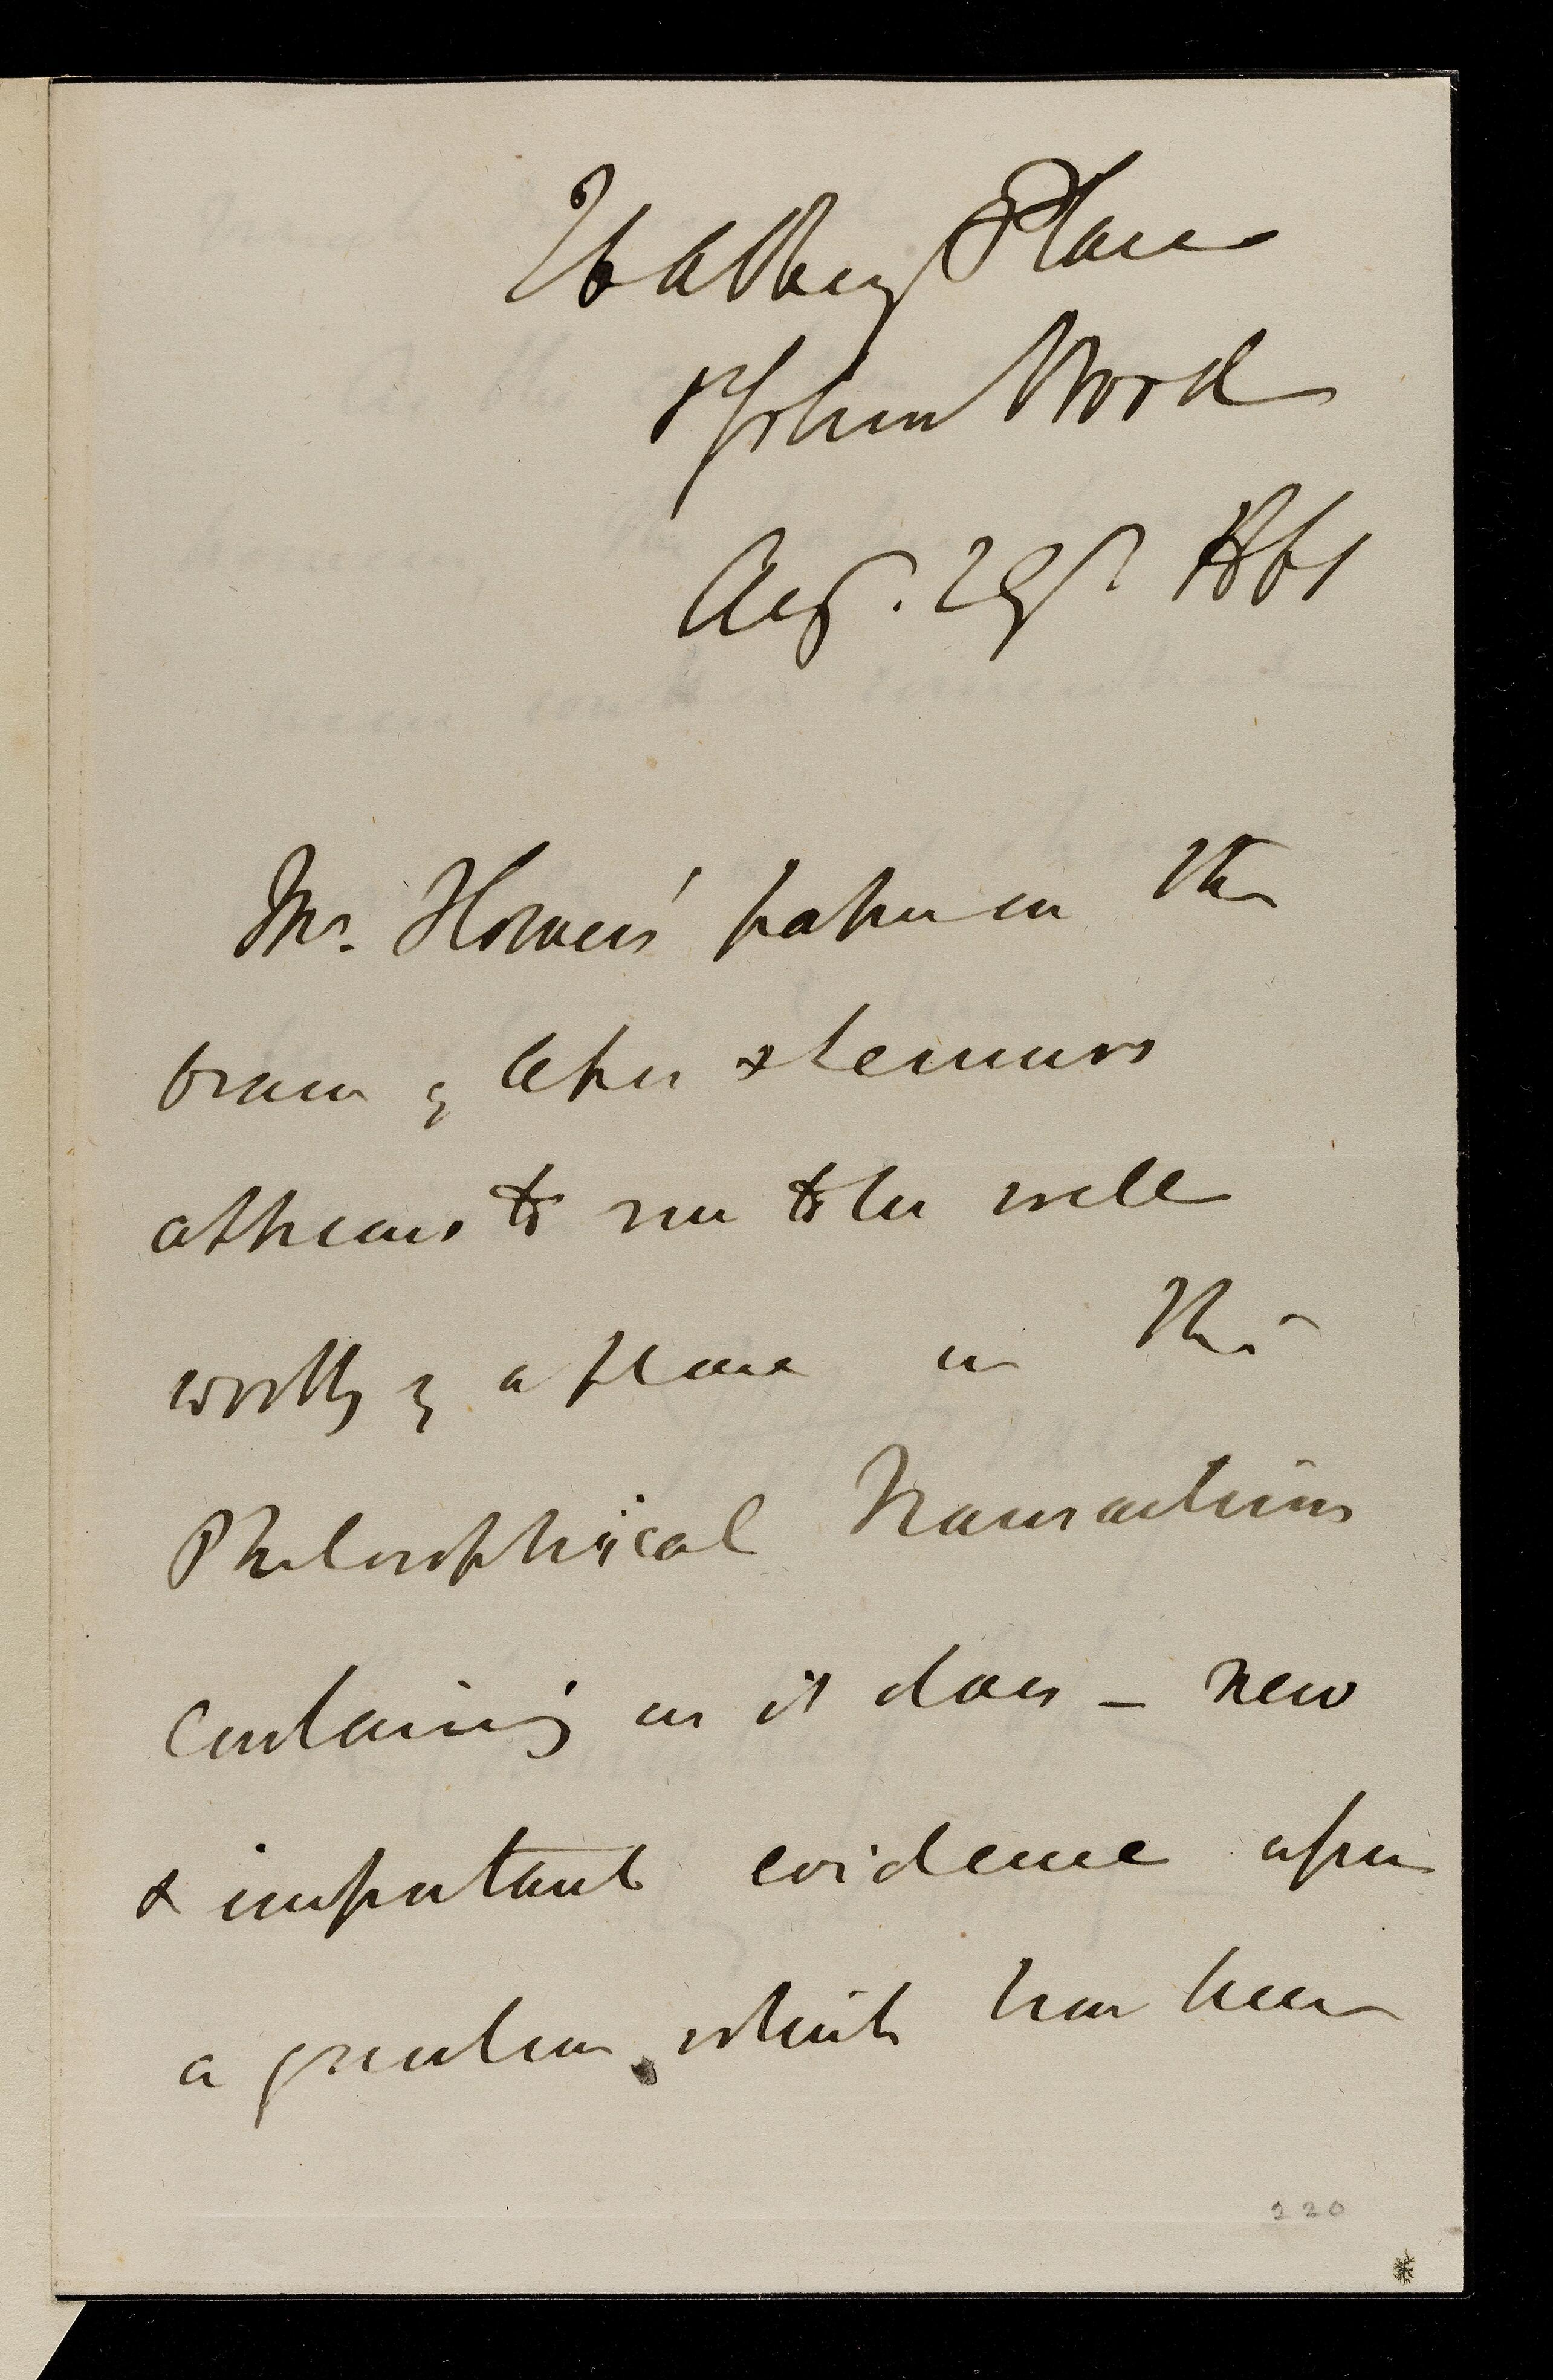 26 Abbey Place
St John's Wood
Aug. 29th 1861
Mr. Flower's paper on the
brain of Apes & Lemurs
appears to me to be well
worthy of a place in the
Philosophical Transactions
containing as it does — new
& important evidence upon
a question which has been
220